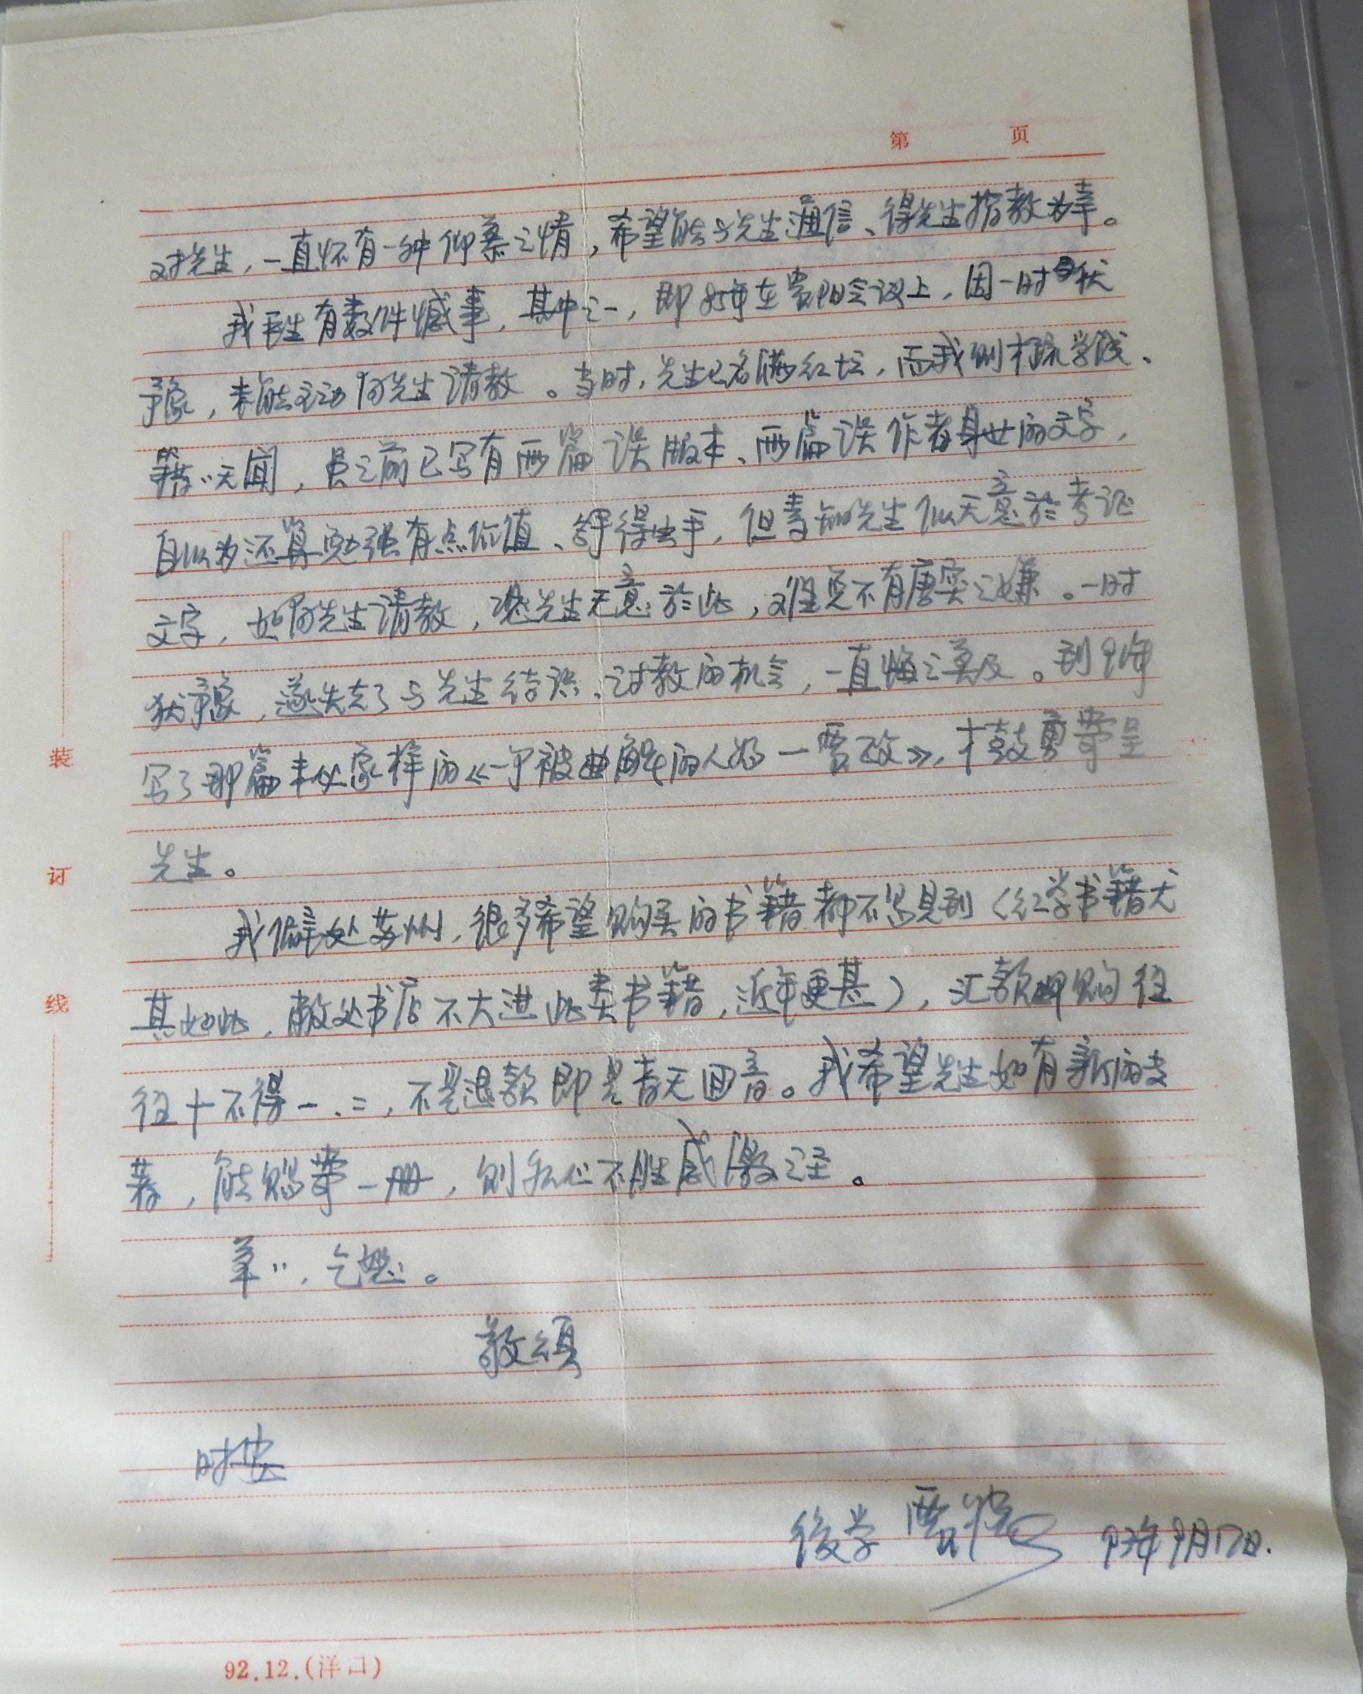 第 页
对先生，一直怀有一种仰慕之情，希望能与先生通信、得先生指教为幸。
我平生有数件憾事，其中之一，即85年在贵阳会议上，因一时犹
豫，未能主动向先生请教。当时，先生已名满红坛，而我则才疏学浅、
籍籍无闻，虽之前已写有两篇谈版本、两篇谈作者身世的文字，
自以为还算勉强有点价值、拿得出手，但素知先生似无意於考证
文字，如向先生请教，恐先生无意於此，难免不有唐突之嫌。一时
犹豫，遂失去了与先生结识、讨教的机会，一直悔之莫及。到91年
写了那篇未必象样的《一个被曲解的人物—贾政》，才鼓勇寄呈
先生。
我僻处苏州，很多希望购买的书籍都不易见到（红学书籍尤
其如此，敝处书店不大进此类书籍，近年更甚），汇款邮购往
往十不得一、二，不是退款即是杳无回音。我希望先生如有新的大
著，能赐寄一册，则私心不胜感激之至。
草〃，乞恕。
敬颂
时安
後学 93年9月17日.
装
订
线
92.12.(洋口)